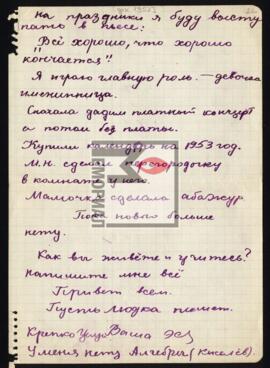 на праздники я буду высту
пать в пьесе:
"Всё хорошо, что хорошо
кончается".
Я играю главную роль. — девочка
именинница.
Сначала дадим платный концерт
а потом без платы.
Купили календарь на 1953 год.
М.Н. сделал перегородочку
в комнате у него.
Мамочка сделала абажур
Пока нового больше
нету.
Как вы живёте и учитесь?
напишите мне всё
Привет всем.
Пусть Людка пишет.
Крепко Ваша
У меня нету Алгебры (Киселёв).
МЕМОРИАЛ